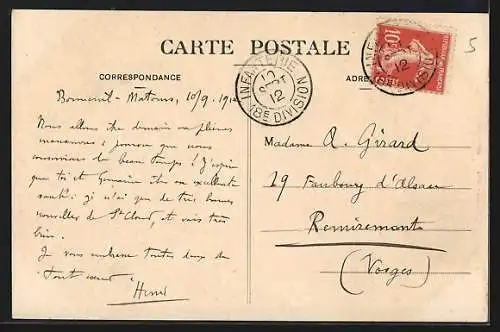 CARTE POSTALE
CORRESPONDANCE
INFANTERIE
18E DIVISION
10
12
10c
5
10/9. 1912
Nous allons demain en pleines
manœuvres ; pourvu que nous
conservions le beau temps ! J'espère
que toi et Germaine êtes en excellente
santé ; je n'ai que de très bonnes
nouvelles de St Cloud, et vais très
bien.
Je vous embrasse toutes deux de
tout cœur
Henri
Madame A. Girard
29 Faubourg d'Alsace
Remiremont
(Vosges)